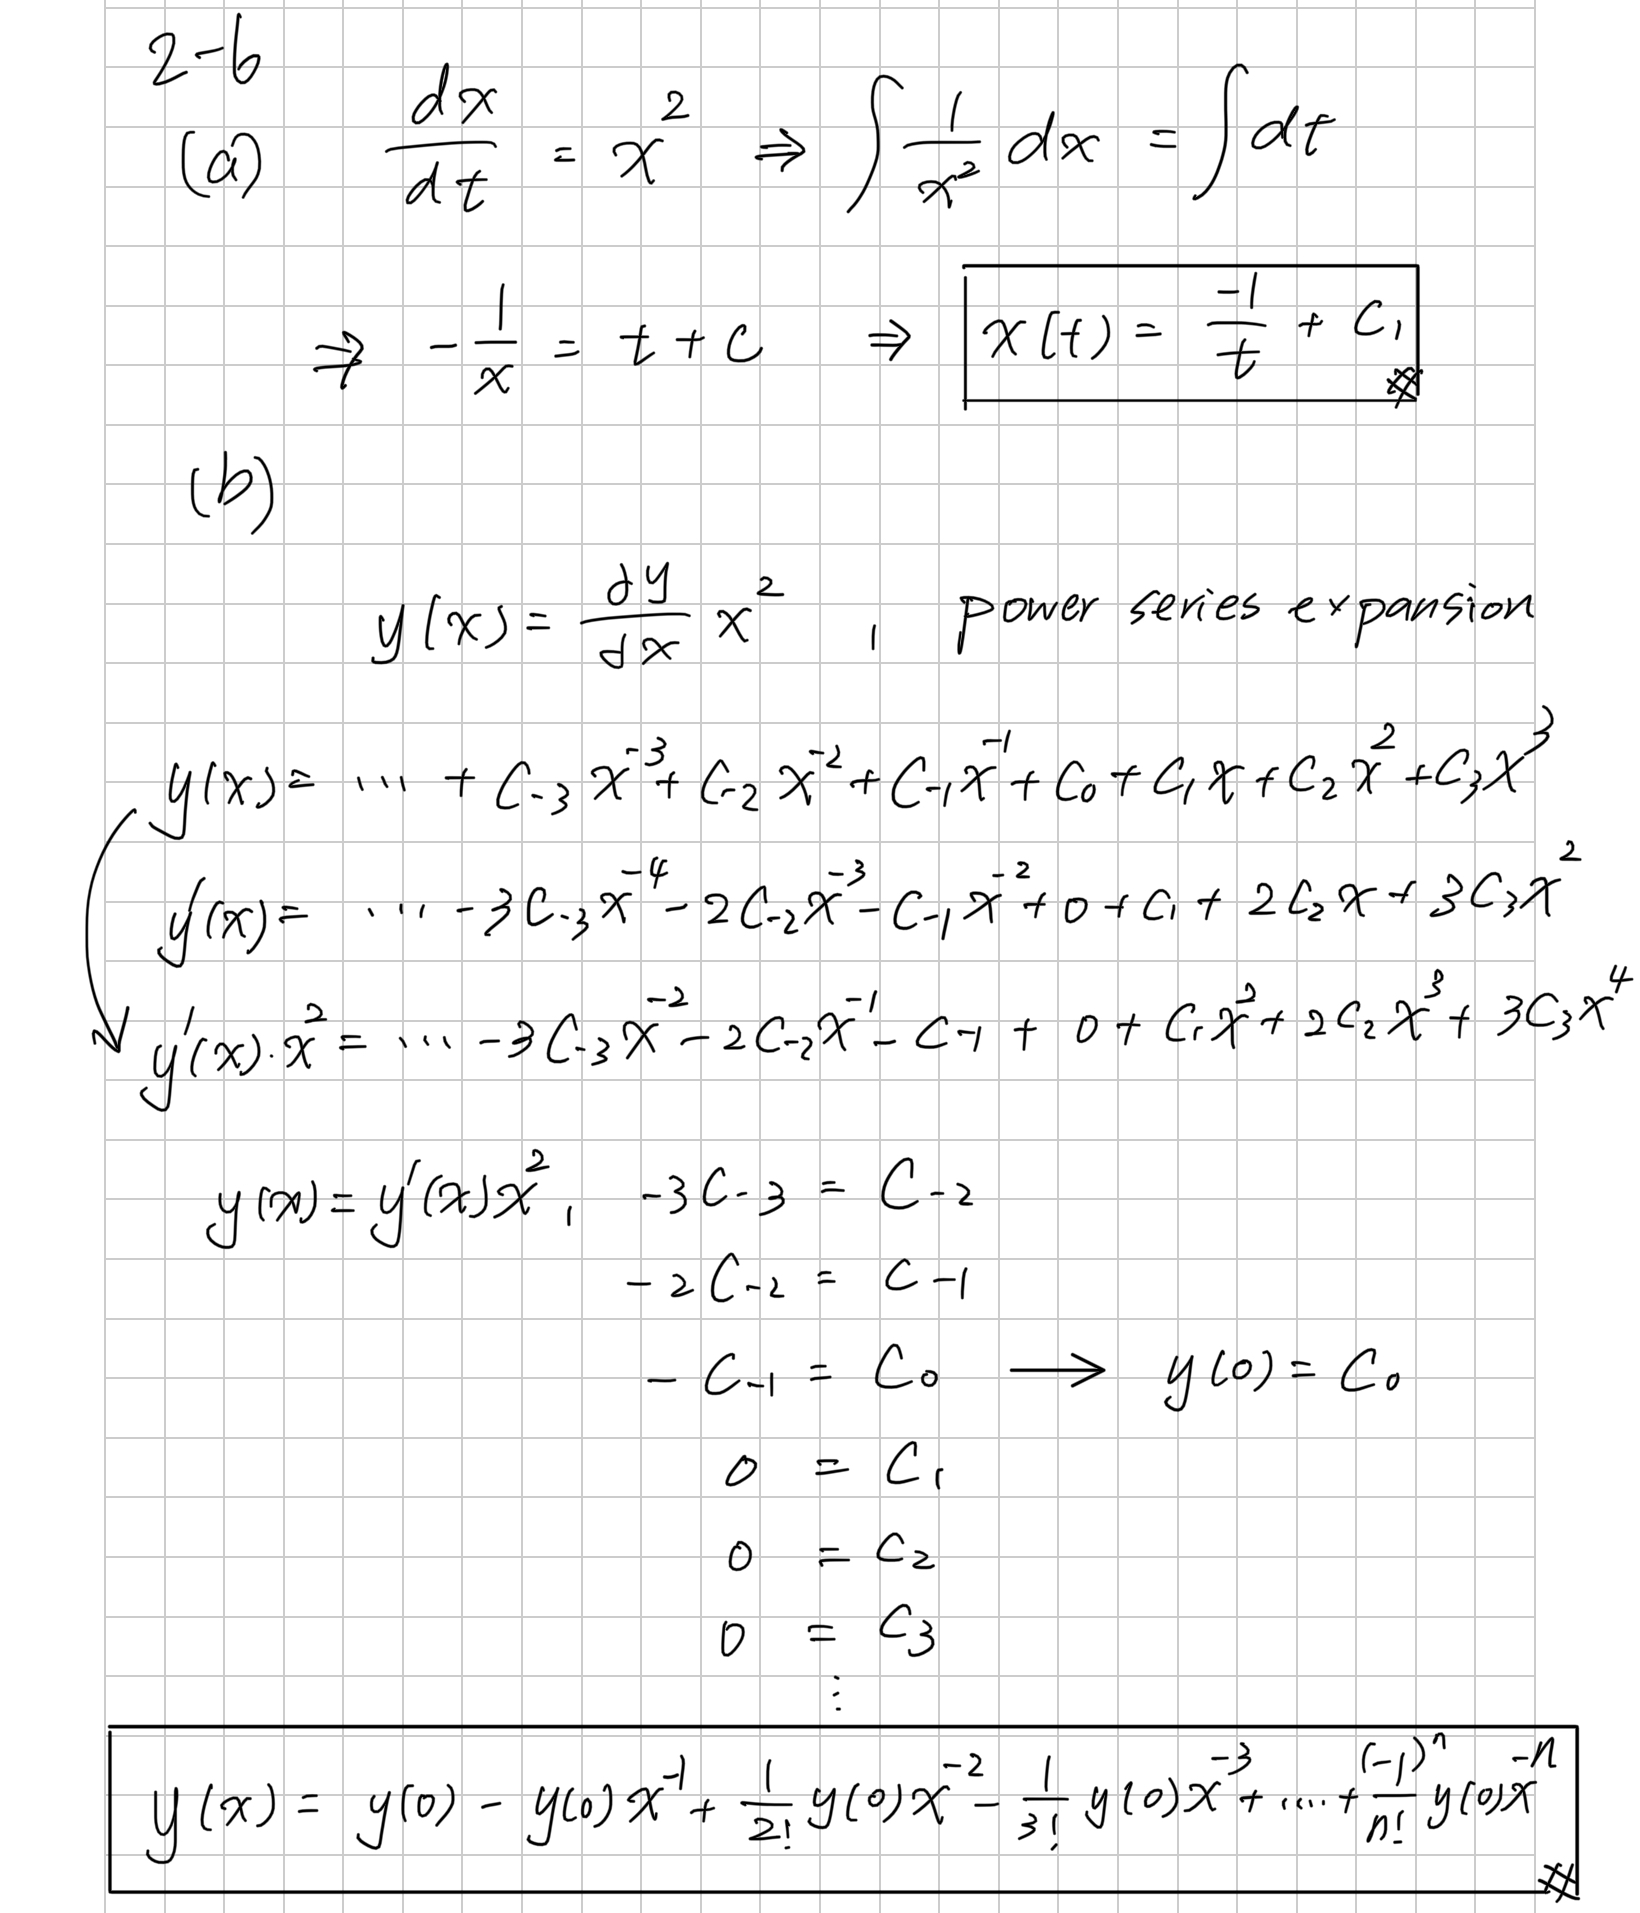 2-6
(a) dx/dt = x² ⇒ ∫ 1/x² dx = ∫ dt
⇒ -1/x = t + C ⇒ x(t) = -1/t + C₁
(b)
y(x) = dy/dx x² , power series expansion
y(x) = ... + C₋₃ x⁻³ + C₋₂ x⁻² + C₋₁ x⁻¹ + C₀ + C₁ x + C₂ x² + C₃ x³
y'(x) = ... -3C₋₃ x⁻⁴ - 2C₋₂ x⁻³ - C₋₁ x⁻² + 0 + C₁ + 2C₂ x + 3C₃ x²
y'(x)·x² = ... -3C₋₃ x⁻² - 2C₋₂ x⁻¹ - C₋₁ + 0 + C₁ x² + 2C₂ x³ + 3C₃ x⁴
y(x) = y'(x) x² , -3C₋₃ = C₋₂
-2C₋₂ = C₋₁
-C₋₁ = C₀ → y(0) = C₀
0 = C₁
0 = C₂
0 = C₃
⋮
y(x) = y(0) - y(0) x⁻¹ + 1/2! y(0) x⁻² - 1/3! y(0) x⁻³ + ..... + (-1)ⁿ/n! y(0) x⁻ⁿ